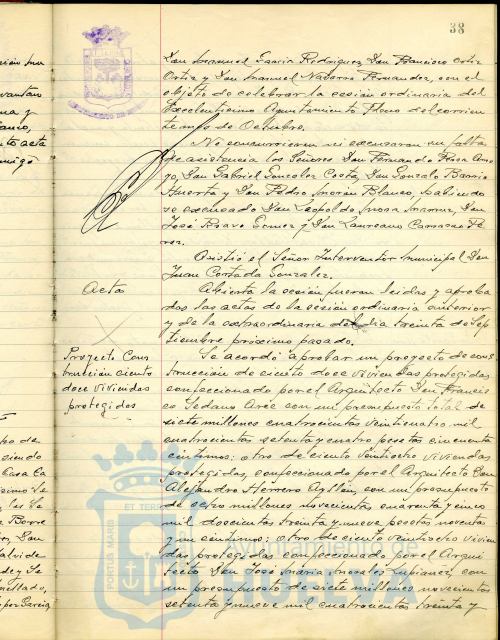 38
Don Manuel Garcia Rodriguez, Don Francisco Ortiz
Ortiz y Don Manuel Navarro Fernandez, con el
objeto de celebrar la sesión ordinaria del
Excelentisimo Ayuntamiento Pleno del corrien
te mes de Octubre.
No concurrieron ni excusaron su falta
de asistencia los Señores Don Fernando
yo, Don Gabriel Gonzalez Costa, Don Gonzalo Barrio
Huerta y Don Pedro Morón Blanco, habiendo
se excusado Don Leopoldo Mora Don
José Bravo Gomez y Don Laureano Carrasco Pé
rez.
Asistió el Señor Interventor Municipal Don
Juan Cortada Gonzalez.
Acta
Abierta la sesión fueron leidas y aproba
das las actas de la sesión ordinaria anterior
y de la extraordinaria del dia treinta de Sep
tiembre próximo pasado.
Proyecto Cons
trucción ciento
doce viviendas
protegidas
Se acordó aprobar un proyecto de cons
trucción de ciento doce viviendas protegidas
confeccionado por el Arquitecto Don Francis
co Sedano Arce con un presupuesto total de
siete millones cuatrocientas veinticuatro mil
cuatrocientas setenta y cuatro pesetas cincuenta
céntimos; otro de ciento veintiocho viviendas
protegidas, confeccionado por el Arquitecto Don
Alejandro Herrero Ayllón, con un presupuesto
de ocho millones novecientas cuarenta y cinco
mil doscientas treinta y nueve pesetas noventa
y un céntimo; otro de ciento veintiocho vivien
das protegidas confeccionado por el Arqui
tecto Don José Maria Morales Lupiañez, con
un presupuesto de siete millones novecientas
setenta y nueve mil cuatrocientas treinta y